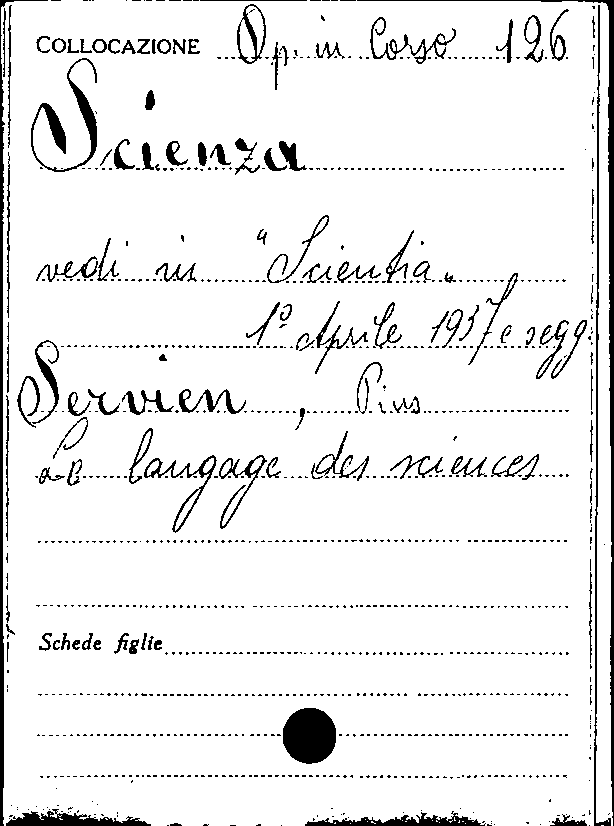 COLLOCAZIONE Op. in Corso 126
Scienza
vedi in "Scientia"
1° Aprile 1937 e segg.
Servien, Pius
Le langage des sciences
Schede figlie